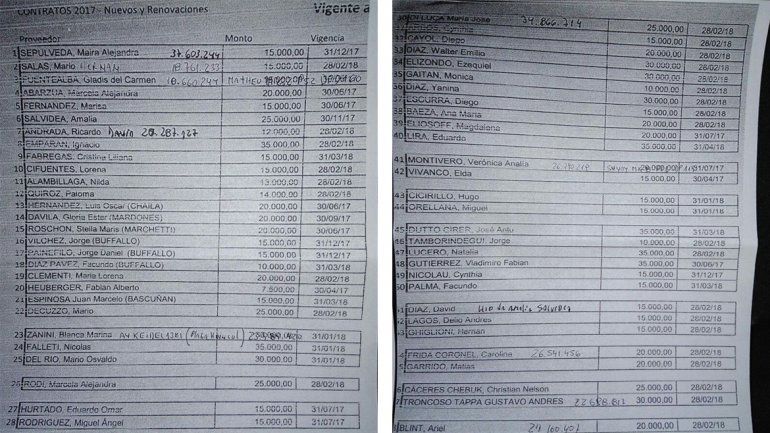 CONTRATOS 2017 - Nuevos y Renovaciones Vigente a
Proveedor Monto Vigencia
1 SEPULVEDA, Maira Alejandra 37.603.244 15.000,00 31/12/17
2 SALAS, Mario HERNAN 18.761.233 15.000,00 28/02/18
3 FUENTEALBA, Gladis del Carmen 18.660.244
4 ABARZUA, Marcela Alejandra 20.000,00 30/06/17
5 FERNANDEZ, Marisa 15.000,00 30/06/17
6 SALVIDEA, Amalia 25.000,00 30/11/17
7 ANDRADA, Ricardo DAVID 20.287.127 12.000,00 28/02/18
8 EMPARAN, Ignacio 35.000,00 28/02/18
9 FABREGAS, Cristina Liliana 15.000,00 31/03/18
10 CIFUENTES, Lorena 15.000,00 28/02/18
11 ALAMBILLAGA, Nilda 13.000,00 28/02/18
12 QUIROZ, Paloma 14.000,00 28/02/18
13 HERNANDEZ, Luis Oscar (CHAILA) 20.000,00 30/06/17
14 DAVILA, Gloria Ester (MARDONES) 20.000,00 30/09/17
15 ROSCHON, Stella Maris (MARCHETTI) 20.000,00 30/06/17
16 VILCHEZ, Jorge (BUFFALO) 15.000,00 31/12/17
17 PAINEFILO, Jorge Daniel (BUFFALO) 15.000,00 31/12/17
18 DIAZ PAVEZ, Facundo (BUFFALO) 10.000,00 31/03/18
19 CLEMENTI, Maria Lorena 20.000,00 28/02/18
20 HEUBERGER, Fabian Alberto 7.500,00 30/04/17
21 ESPINOSA Juan Marcelo (BASCUÑAN) 15.000,00 31/03/18
22 DECUZZO, Mario 25.000,00 28/02/18
23 ZANINI, Blanca Marina 31/01/18
24 FALLETI, Nicolas 35.000,00 31/01/18
25 DEL RIO, Mario Osvaldo 30.000,00 31/01/18
26 RODI, Marcela Alejandra 25.000,00 28/02/18
27 HURTADO, Eduardo Omar 15.000,00 31/07/17
28 RODRIGUEZ, Miguel Ángel 15.000,00 31/07/17
30 DI LUCA Maria José 34.866.714 25.000,00 28/02/18
15.000,00 28/02/18
32 CAYOL, Diego 15.000,00 28/02/18
33 DIAZ, Walter Emilio 20.000,00 28/02/18
34 ELIZONDO, Ezequiel 30.000,00 28/02/18
35 GAITAN, Monica 30.000,00 28/02/18
36 DIAZ, Yanina 10.000,00 28/02/18
37 ESCURRA, Diego 30.000,00 28/02/18
38 BAEZA, Ana Maria 15.000,00 28/02/18
39 ELIOSOFF, Magdalena 20.000,00 28/02/18
40 LIRA, Eduardo 20.000,00 31/07/17
35.000,00 31/04/18
41 MONTIVERO, Verónica Analia 31/07/17
42 VIVANCO, Elda 15.000,00 30/04/17
43 CICIRILLO, Hugo 15.000,00 31/01/18
44 ORELLANA, Miguel 15.000,00 31/01/18
45 DUTTO CIRER, José 35.000,00 31/03/18
46 TAMBORINDEGUI, Jorge 10.000,00 28/02/18
47 LUCERO, Natalia 35.000,00 31/03/18
48 GUTIERREZ, Vladimiro Fabian 35.000,00 30/06/17
49 NICOLAU, Cynthia 15.000,00 31/12/17
50 PALMA, Facundo 15.000,00 31/03/18
51 DIAZ, David Hijo de Amalia Salvidea 15.000,00 28/02/18
52 LAGOS, Delio Andres 15.000,00 28/02/18
53 GHIGLIONI, Hernán 15.000,00 28/02/18
4 FRIDA CORONEL, Caroline 26.541.456 20.000,00 28/02/18
5 GARRIDO, Matias 20.000,00 28/02/18
6 CÁCERES CHEBUK, Christian Nelson 25.000,00 28/02/18
7 TRONCOSO TAPPA GUSTAVO ANDRES 22.688.812 30.000,00 28/02/18
8 BLINT, Ariel 29.100.401 20.000,00 28/02/18